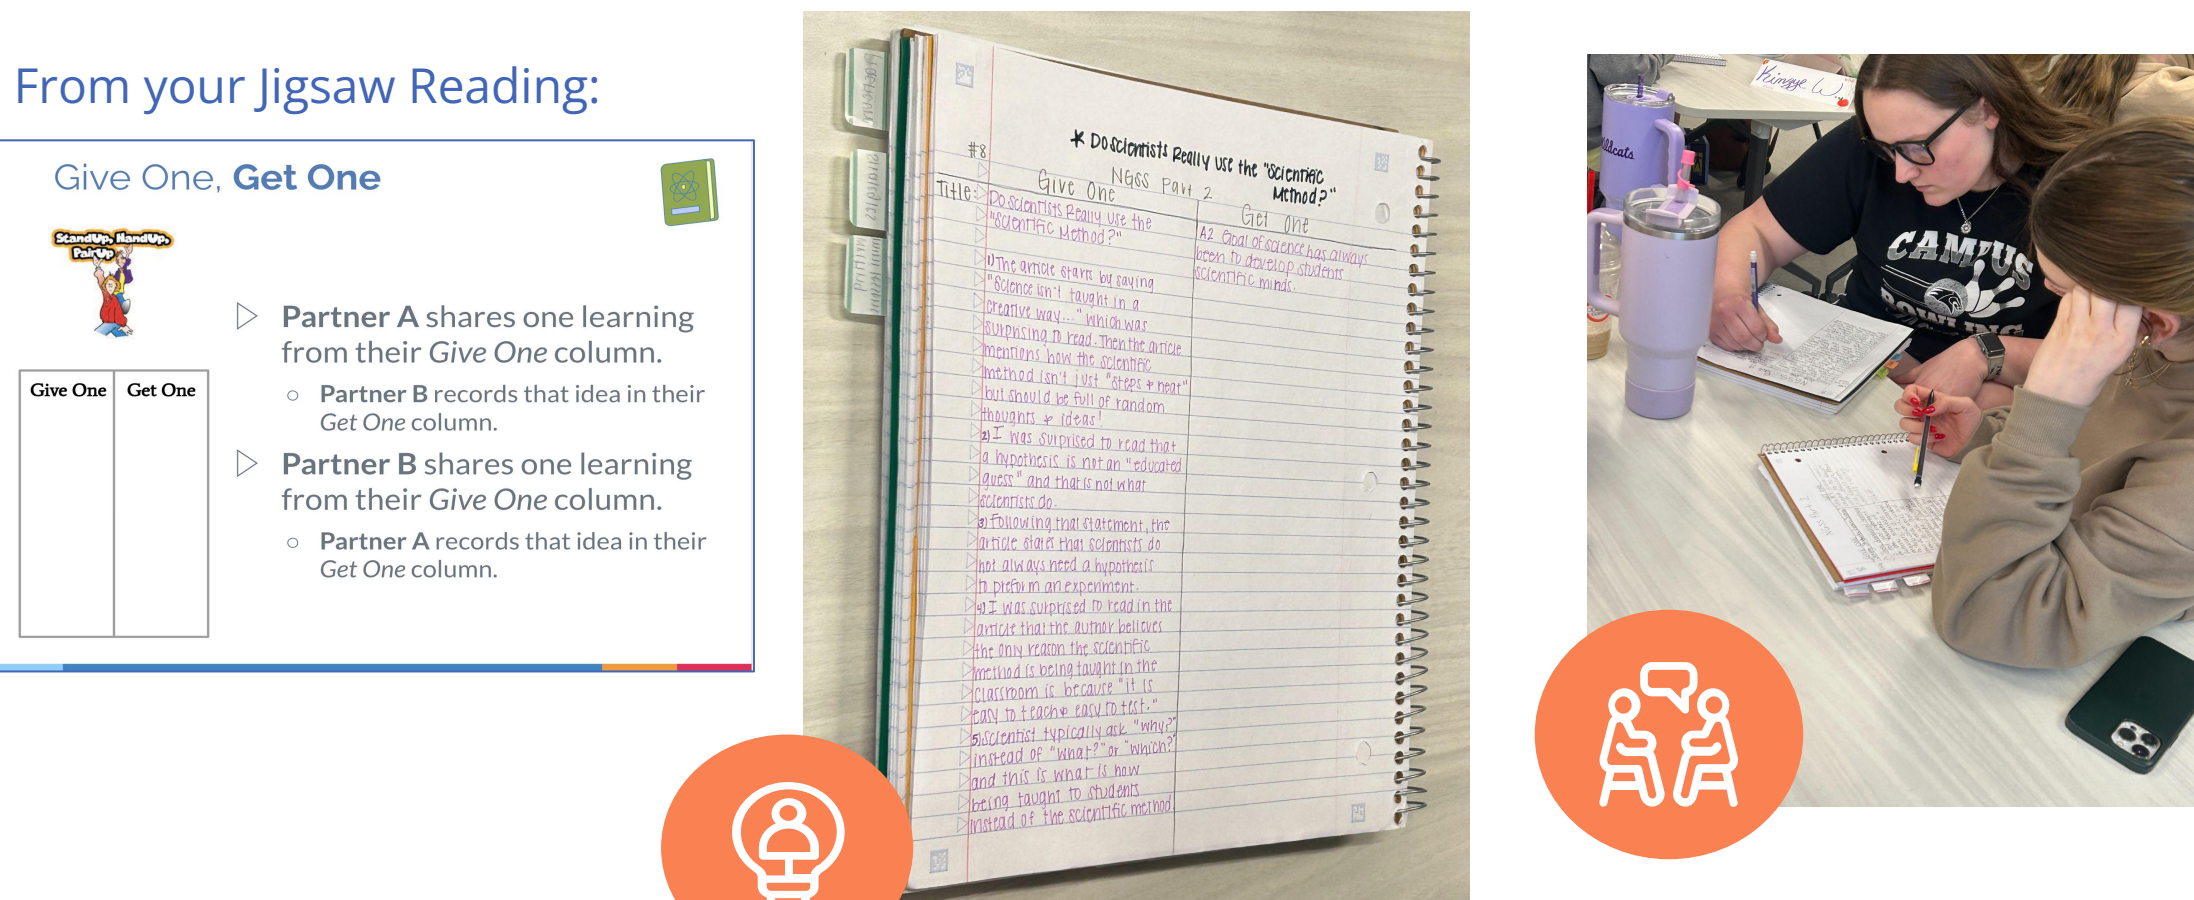 From your Jigsaw Reading:
Give One, Get One
StandUp, HandUp,
PairUp
Partner A shares one learning
from their Give One column.
Partner B records that idea in their
Get One column.
Partner B shares one learning
from their Give One column.
Partner A records that idea in their
Get One column.
Give One
Get One
#8
* Do scientists Really use the "Scientific
Method?"
NGSS Part 2
Title:
Give One
Do scientists Really use the
"Scientific Method?"
1) The article starts by saying
"Science isn't taught in a
creative way..." which was
surprising to read. Then the article
mentions how the scientific
method isn't just "steps & neat"
but should be full of random
thoughts & ideas!
2) I was surprised to read that
a hypothesis is not an "educated
guess" and that is not what
scientists do.
3) Following that statement, the
article states that scientists do
not always need a hypothesis
to preform an experiment.
4) I was surprised to read in the
article that the author believes
the only reason the scientific
method is being taught in the
classroom is because "it is
easy to teach & easy to test."
5) Scientist typically ask "why?"
instead of "what?" or "which?"
and this is what is now
being taught to students
instead of the scientific method.
Get One
A2 Goal of science has always
been to develop students
scientific minds.
Kinzye W
CAMPUS
BOWLING